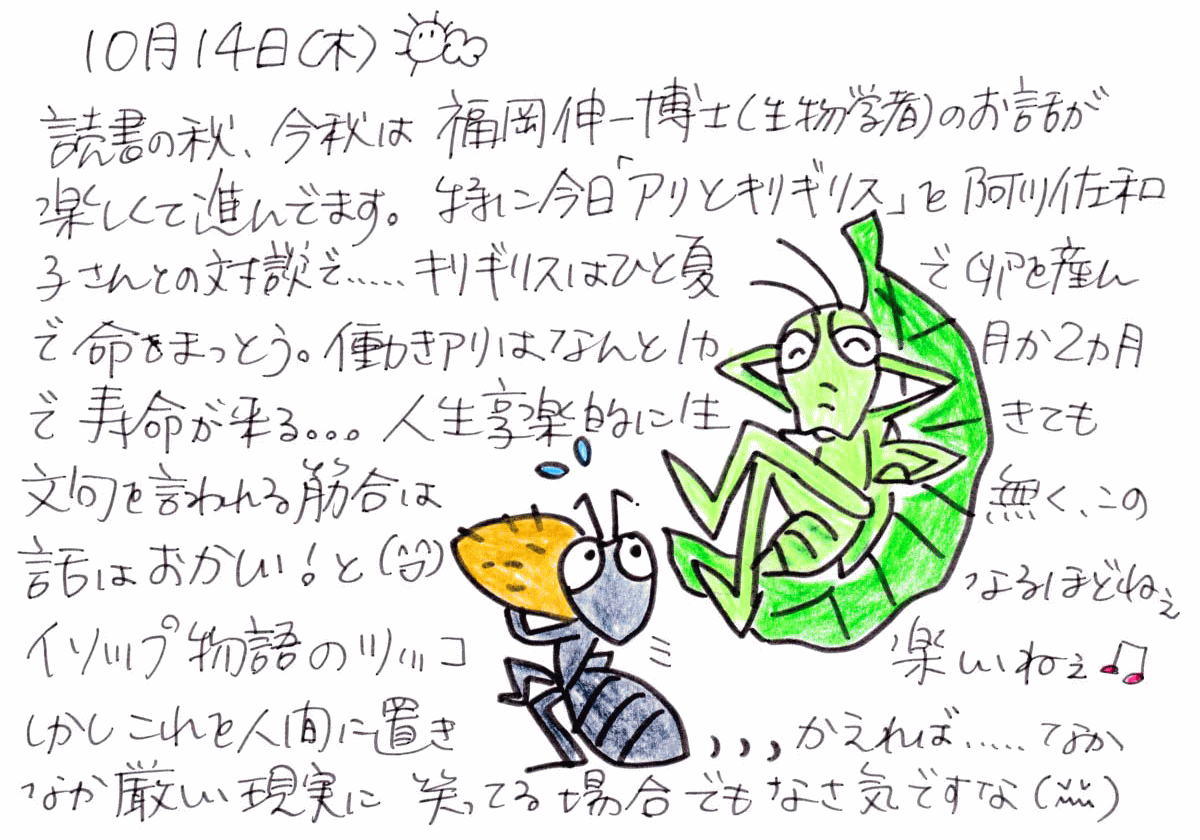 10月14日(木)
読書の秋、今秋は 福岡伸一博士(生物学者)のお話が
楽しくて進んでます。特に今日「アリとキリギリス」を阿川佐和
子さんとの対談で……キリギリスはひと夏で卵を産ん
で命をまっとう。働きアリはなんと1カ月か2カ月
で寿命が来る。。。人生享楽的に生きても
文句を言われる筋合は無く、この
話はおかしい!と(^^)なるほどねぇ
イソップ物語のツッコ楽しいねぇ♫
しかしこれを人間に置き,,,かえれば……なか
なか厳しい現実に 笑ってる場合でもなさ気ですな(^^)